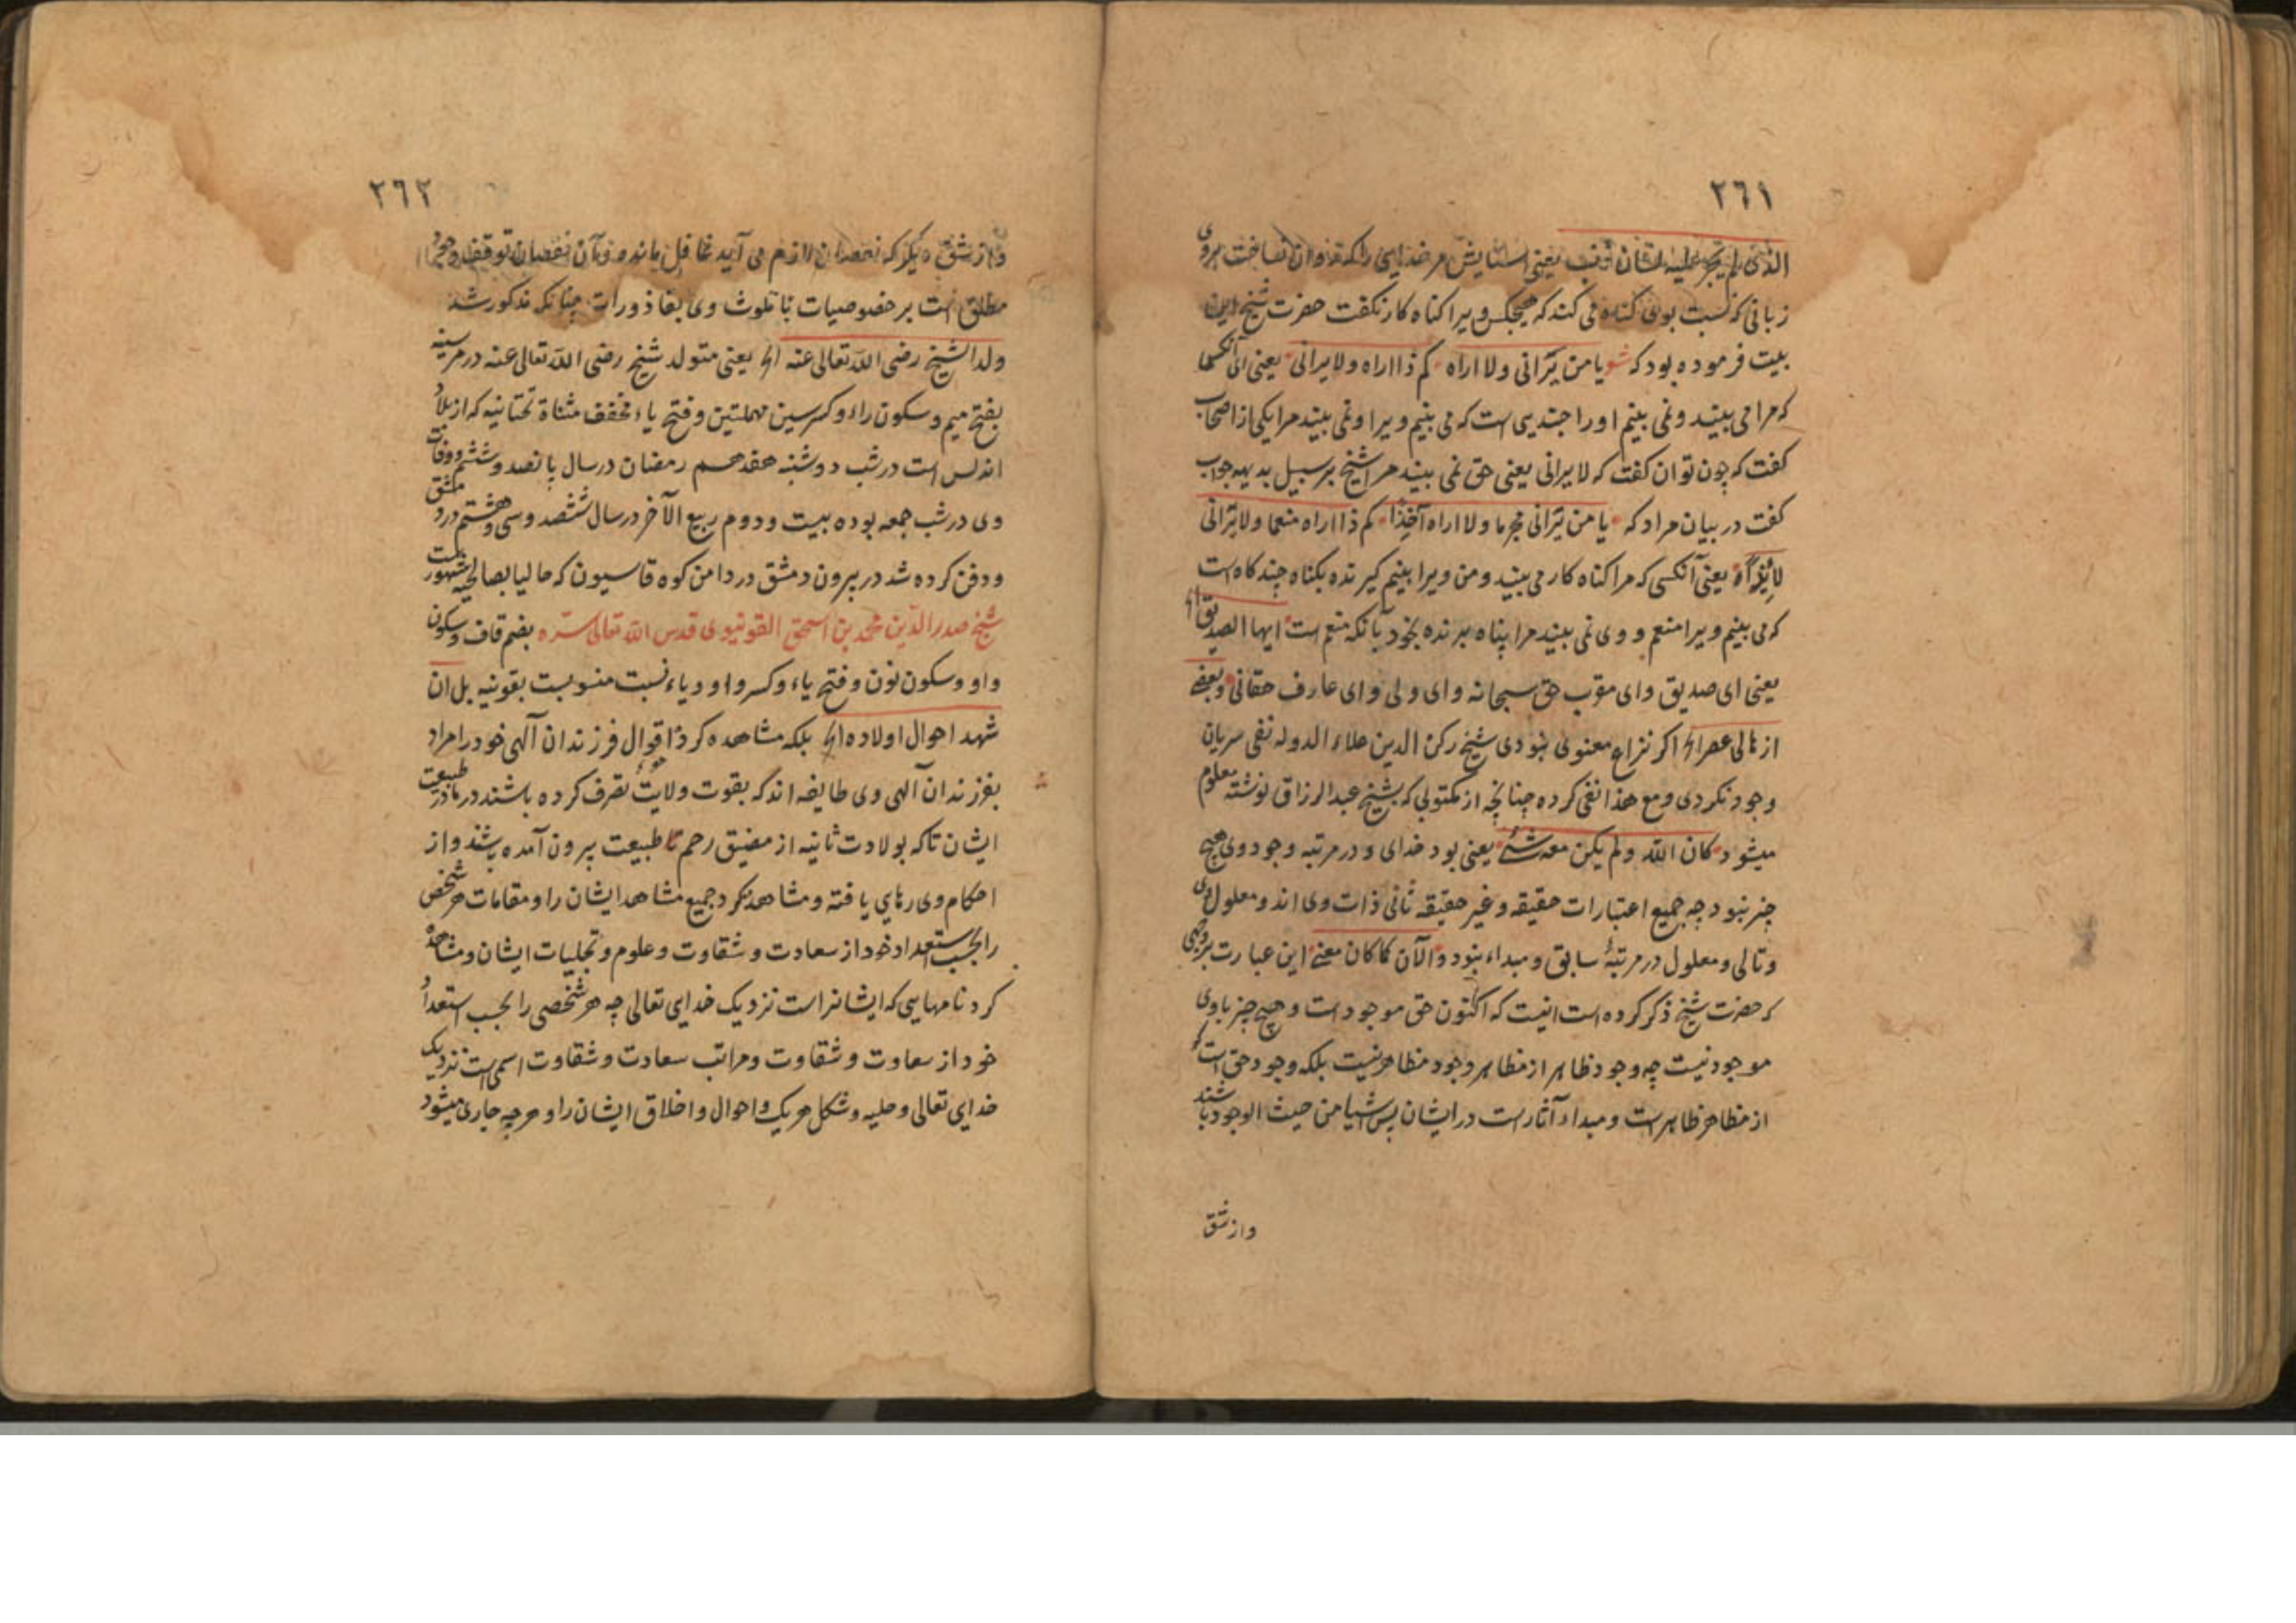 ٢٦١
الذی لم یجر علیه لسان ذنب یعنی ستایش مر خدایی را که روان نساخت بر وی
زبانی که نسبت بوی کناه می کند که هیچکس ویرا کناه کار نکفت حضرت شیخ این
بیت فرموده بود که شو یا من یرانی ولا اراه کم ذا اراه ولا یرانی یعنی ای آنکس
که مرا می بیند و نمی بینم او را چندیی است که می بینم ویرا و نمی بیند مرا یکی از اصحاب
کفت که چون توان کفت که لا یرانی یعنی حق نمی بیند مرا شیخ بر سبیل بدیهه جواب
کفت در بیان مراد که یا من یرانی مجرما ولا اراه آخذا کم ذا اراه منعما ولا یرانی
لائذا یعنی آنکسی که مرا کناه کار می بیند و من ویرا بینم کیرنده بکناه چند کاه است
که می بینم ویرا منعم و وی نمی بیند مرا پناه برنده بخود با آنکه منعم است ایها الصدیق الخ
یعنی ای صدیق و ای مقرب حق سبحانه و ای ولی و ای عارف حقانی وبعض
از هالی عصر الخ اکر نزاع معنوی نبودی شیخ رکن الدین علاء الدوله نفی سریان
وجود نکردی و مع هذا نفی کرده چنانچه از مکتوبی که بشیخ عبدالرزاق نوشته معلوم
میشود کان الله ولم یکن معه شئ یعنی بود خدای و در مرتبه وجود وی هیچ
چیز نبود چه جمیع اعتبارات حقیقه و غیر حقیقه ثانی ذات وی اند و معلول وی
و تالی و معلول در مرتبهٔ سابق و مبداء نبود والآن کما کان معنی این عبارت بروجهی
که حضرت شیخ ذکر کرده است اینست که اکنون حق موجود است و هیچ چیز با وی
موجود نیست چه وجود ظاهر از مظاهر وجود مظاهر نیست بلکه وجود حق است که
از مظاهر ظاهر است و مبداء آثار است در ایشان پس اشیا من حیث الوجود باشند
واز شق
٢٦٢
واز شق دیکر که نقصان لازم می آید غافل مانده و آن نقصان توقف وجود
مطلق است بر خصوصیات با تلوث وی بقاذورات چنانکه مذکور شد
ولد الشیخ رضی الله تعالی عنه الخ یعنی متولد شیخ رضی الله تعالی عنه در مرسیه
بفتح میم و سکون راء و کسر سین مهملتین و فتح یاء مخفف مثناة تحتانیه که از بلاد
اندلس است در شب دوشنبه هفدهم رمضان در سال پانصد و ششم و وفات
وی در شب جمعه بوده بیست و دوم ربیع الآخر در سال ششصد و سی و هشتم در دمشق
و دفن کرده شد در بیرون دمشق در دامن کوه قاسیون که حالیا بصالحیه مشهور است
شیخ صدر الدین محمد بن اسحق القونیوی قدس الله تعالی سره بضم قاف و سکون
واو و سکون نون و فتح یاء و کسر واو و یاء نسبت منسوبست بقونیه بل ان
شهد احوال اولاده الخ بلکه مشاهده کرد اقوال فرزندان آلهی خود را مراد
بفرزندان آلهی وی طایفه اند که بقوت ولایت تصرف کرده باشند در مادر طبیعت
ایشان تا که بولادت ثانیه از مضیق رحم تا طبیعت بیرون آمده باشند و از
احکام وی رهایی یافته و مشاهده کرد جمیع مشاهد ایشان را و مقامات هر شخص
را بحسب استعداد خود از سعادت و شقاوت و علوم و تجلیات ایشان و مشاهده
کرد نامهایی که ایشانراست نزدیک خدای تعالی چه هر شخصی را بحسب استعداد
خود از سعاوت و شقاوت و مراتب سعادت و شقاوت اسمی است نزدیک
خدای تعالی و حلیه و شکل هر یک و احوال و اخلاق ایشان را و هر چه جاری میشود